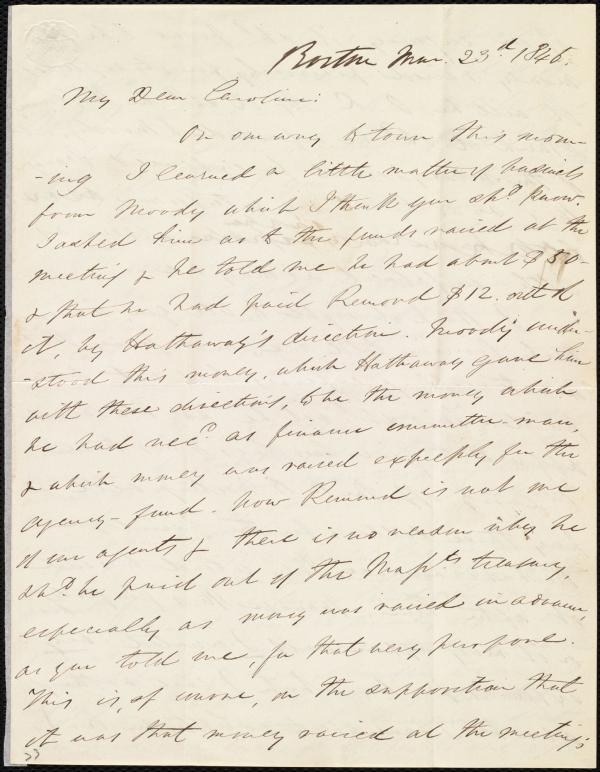 Boston Mar. 23d 1846.
My Dear Caroline:
On our way to town this morn-
-ing I learned a little matter of business
from Moody which I think you shd know.
I asked him as to the funds raised at the
meeting & he told me he had about $30-
& that he had paid Remond $12. out of
it, by Hathaway's direction. Moody under-
-stood this money, which Hathaway gave him
with these directions, to be the money which
he had recd as finance committee-man,
& which money was raised expressly for the
agency-fund. Now Remond is not one
of our agents & there is no reason why he
shd be paid out of the Massts treasury,
especially as money was raised in advance,
as you told me, for that very purpose.
This is, of course, on the supposition that
it was that money raised at the meetings